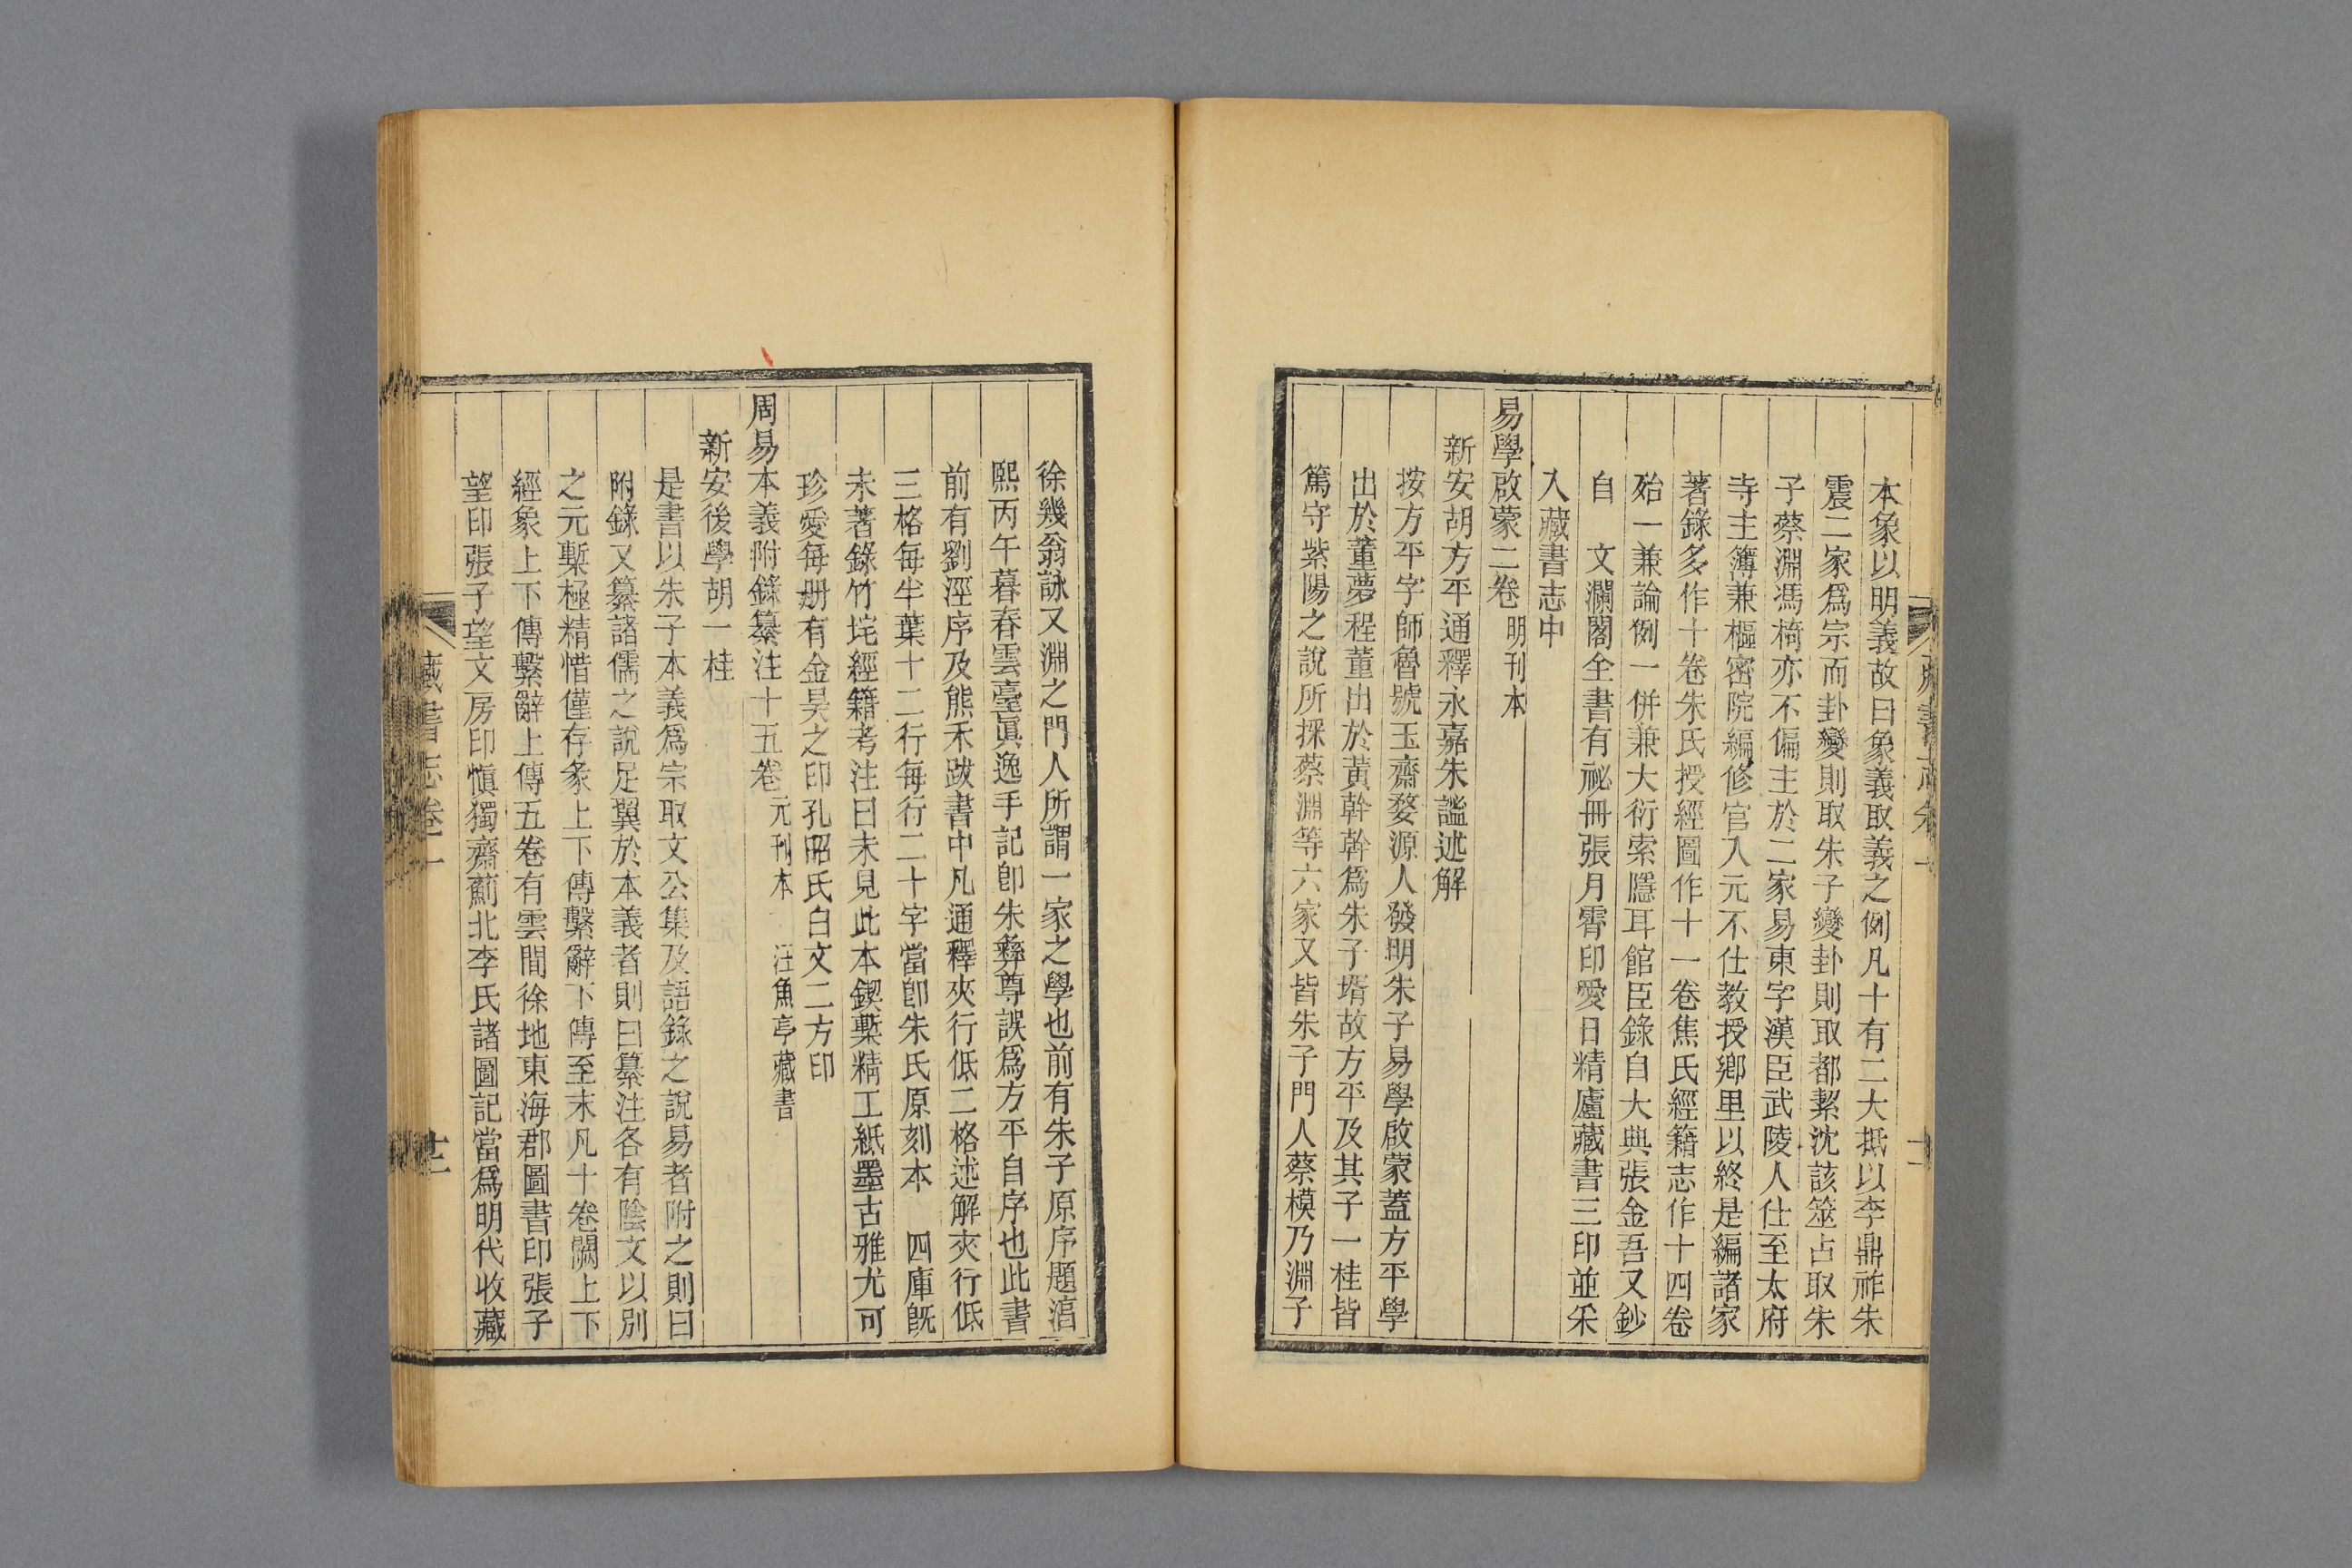 本象以明義故曰象義取義之例凡十有二大抵以李鼎祚朱
震二家爲宗而卦變則取朱子變卦則取都絜沈該筮占取朱
子蔡淵馮椅亦不偏主於二家易東字漢臣武陵人仕至太府
寺主簿兼樞密院編修官入元不仕教授鄉里以終是編諸家
著錄多作十卷朱氏授經圖作十一卷焦氏經籍志作十四卷
殆一兼論例一併兼大衍索隱耳館臣錄自大典張金吾又鈔
自　文瀾閣全書有祕冊張月霄印愛日精廬藏書三印並采
入藏書志中
易學啟蒙二卷　明刊本
新安胡方平通釋永嘉朱謐述解
按方平字師魯號玉齋婺源人發明朱子易學啟蒙蓋方平學
出於董夢程董出於黃幹幹爲朱子壻故方平及其子一桂皆
篤守紫陽之說所採蔡淵等六家又皆朱子門人蔡模乃淵子
徐幾翁詠又淵之門人所謂一家之學也前有朱子原序題淳
熙丙午暮春雲臺眞逸手記卽朱彝尊誤爲方平自序也此書
前有劉涇序及熊禾跋書中凡通釋夾行低二格述解夾行低
三格每半葉十二行每行二十字當卽朱氏原刻本　四庫旣
未著錄竹垞經籍考注曰未見此本鋟槧精工紙墨古雅尤可
珍愛每册有金昊之印孔昭氏白文二方印
周易本義附錄纂注十五卷　元刊本　汪魚亭藏書
新安後學胡一桂
是書以朱子本義爲宗取文公集及語錄之說易者附之則曰
附錄又纂諸儒之說足翼於本義者則曰纂注各有陰文以別
之元槧極精惜僅存彖上下傳繫辭下傳至末凡十卷闕上下
經象上下傳繫辭上傳五卷有雲間徐地東海郡圖書印張子
望印張子望文房印愼獨齋薊北李氏諸圖記當爲明代收藏
藏書志卷一